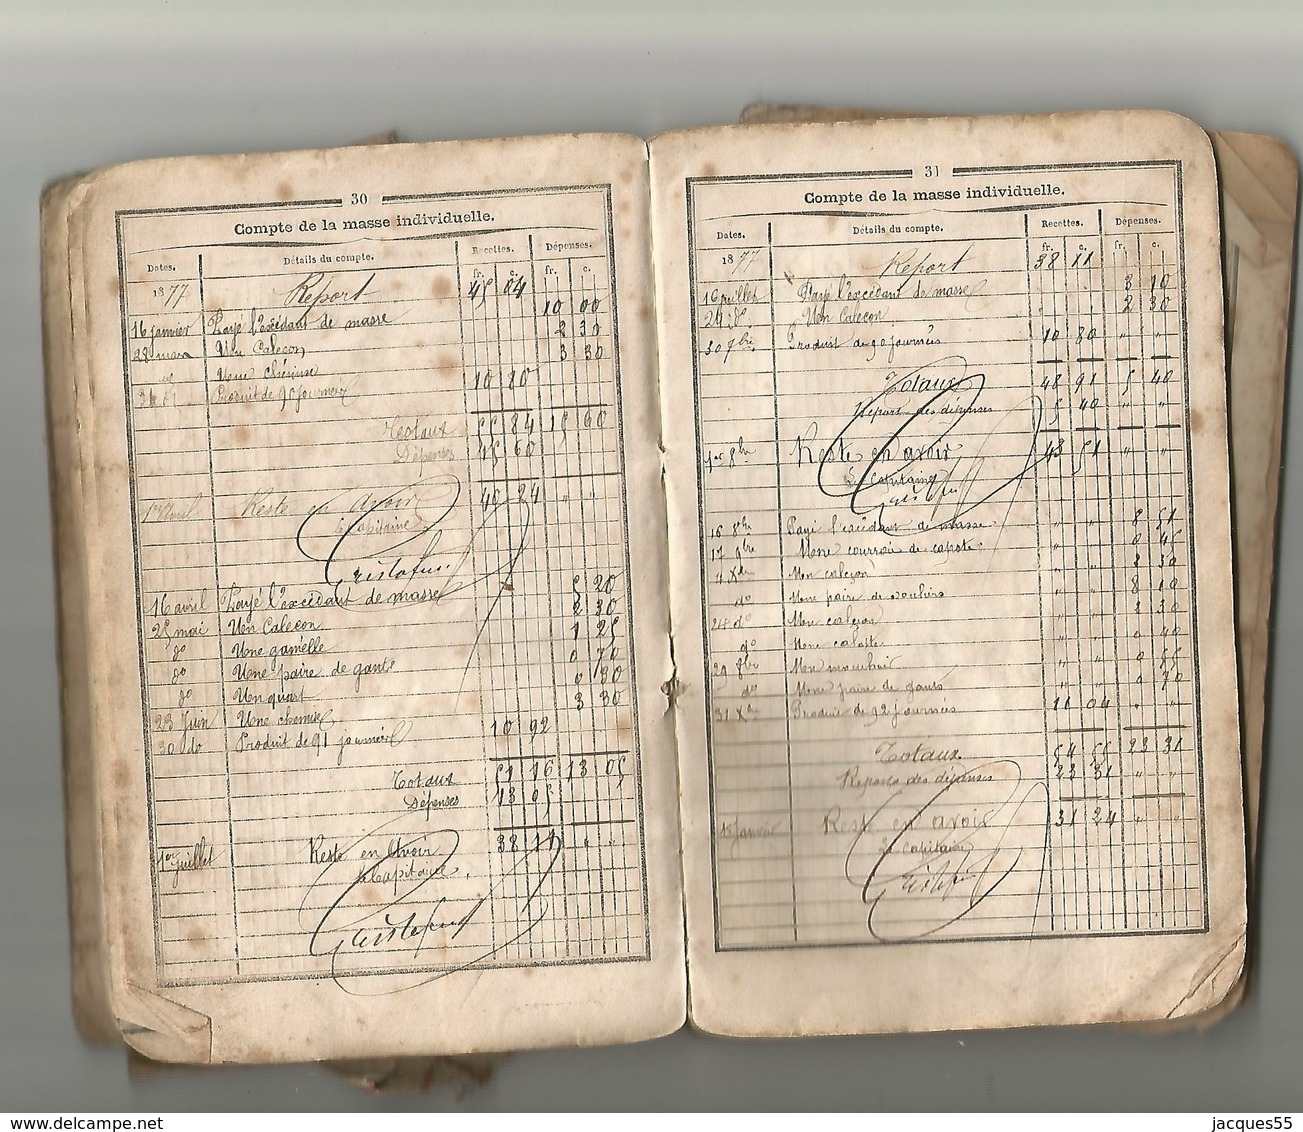 30
Compte de la masse individuelle.
Dates. Détails du compte. Recettes. Dépenses.
fr. c. fr. c.
1877 Report 45 04
16 janvier Payé l'excédant de masse 10 00
28 mars Un Calecon 2 30
do Une chemise 3 30
Produit de 90 journées 10 80
Totaux 55 84 15 60
Dépenses 15 60
1er Avril Reste en avoir 40 24 " "
Le Capitaine
Cristofini
16 avril Payé l'excédant de masse 5 20
25 mai Un Calecon 2 30
do Une gamelle 1 25
do Une paire de gants 0 70
do Un quart 0 30
23 Juin Une chemise 3 30
30 do Produit de 91 journées 10 92
Totaux 51 16 13 05
Dépenses 13 05
1er juillet Reste en Avoir 38 11 " "
Le Capitaine.
Cristofini
31
Compte de la masse individuelle.
Dates. Détails du compte. Recettes. Dépenses.
fr. c. fr. c.
1877 Report 38 11
16 juillet Payé l'excédant de masse 3 10
29 do Un Calecon 2 30
30 7bre Produit de 90 journées 10 80 " "
Totaux 48 91 5 40
Report des dépenses 5 40 " "
1er 8bre Reste en avoir 43 51 " "
Le Capitaine
16 8bre Payé l'excédant de masse " " 8 51
17 9bre Une courroie de capote " " 0 45
4 Xbre Un caleçon " " 2 30
do Une paire de souliers " " 8 10
24 do Un caleçon " " 2 30
do Une calotte " " 0 40
29 8bre Un mouchoir " " 0 55
do Une paire de gants " " 0 70
31 Xbre Produit de 92 journées 11 04 " "
Totaux 54 55 23 31
Report des dépenses 23 31 " "
1er Janvier Reste en avoir 31 24 " "
Le capitaine
Cristofini
jacques55